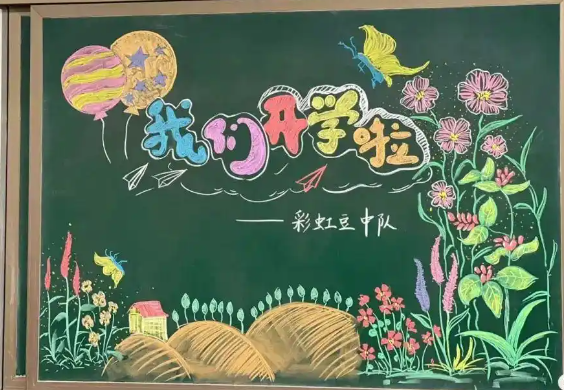 我们开学啦
——彩虹豆中队